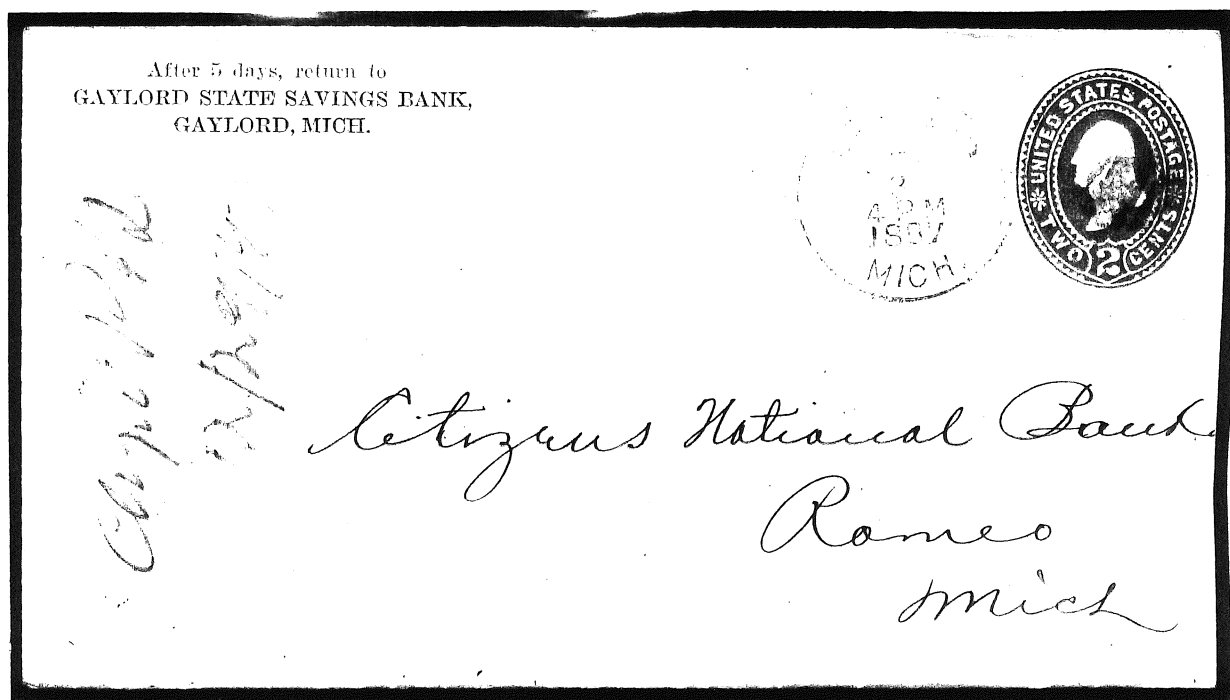 After 5 days, return to
GAYLORD STATE SAVINGS BANK,
GAYLORD, MICH.
UNITED STATES POSTAGE
TWO 2 CENTS
4 PM
1897
MICH.
Citizens National Bank
Romeo
Mich